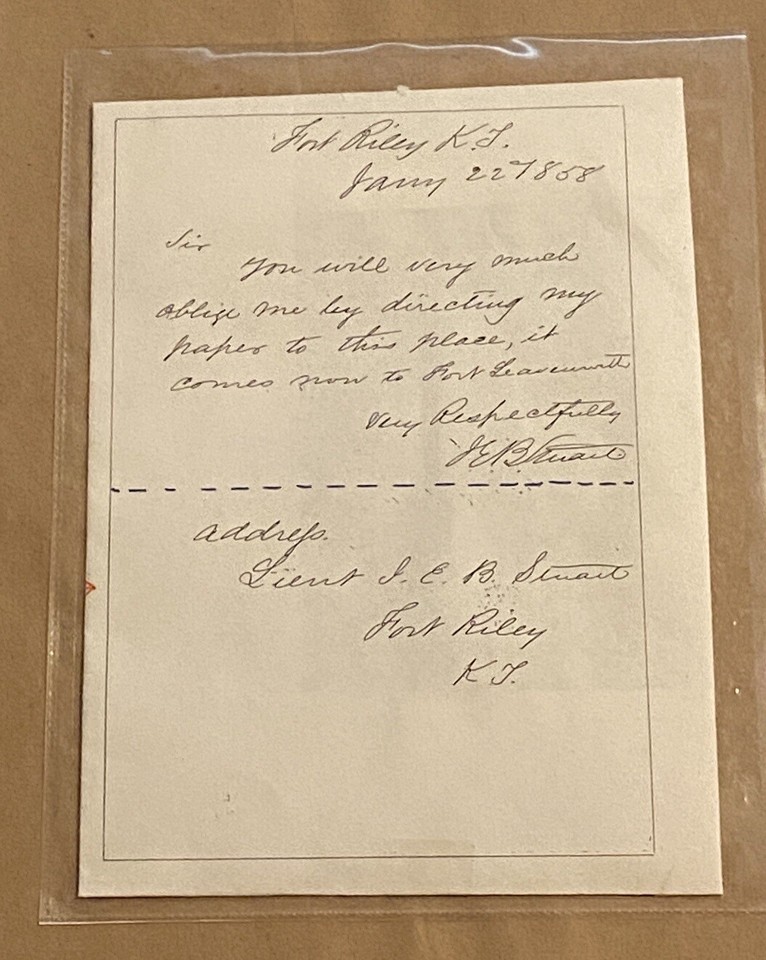 Fort Riley K.T.
Jany 22 1858
Sir
You will very much
oblige me by directing my
paper to this place, it
comes now to Fort Leavenworth
Very Respectfully
J E B Stuart
Address.
Lieut J. E. B. Stuart
Fort Riley
K T.